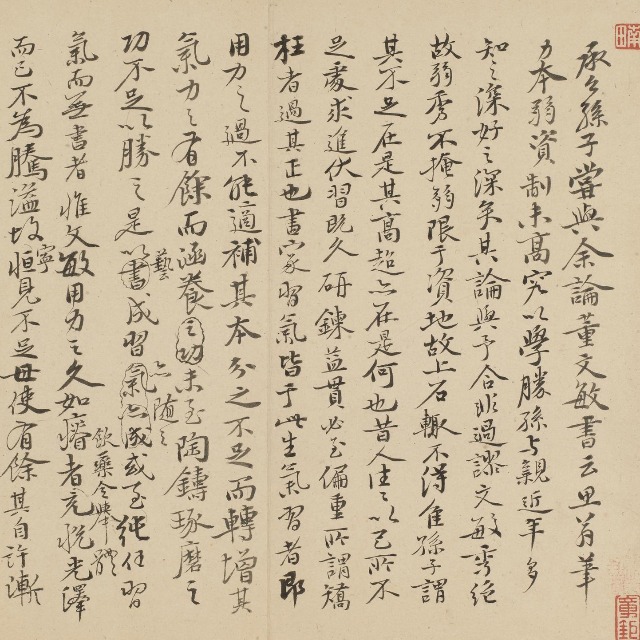 承公孫子嘗與余論董文敏書云思翁筆
力本弱資制未高究以學勝孫子與親近年多
知之深好之深矣其論與予合非過謬文敏秀絕
故弱秀不掩弱限于資地故上石輒不得佳孫子謂
其不足在是其高超亦在是何也昔人往往以己所不
足處求進伏習既久研鍊益貫必至偏重所謂矯
枉者過其正也書家習氣皆于此生氣習者即
用力之過不能適補其本分之不足而轉增其
氣力之有餘而涵養之功未至陶鑄琢磨之
功不足以勝之是以藝成習亦隨之或至純任習
氣而無書者惟文敏用力之久如瘠者飲藥令舉體充悅光澤
而已不為騰溢故寧恒見不足毋使有餘其自許漸